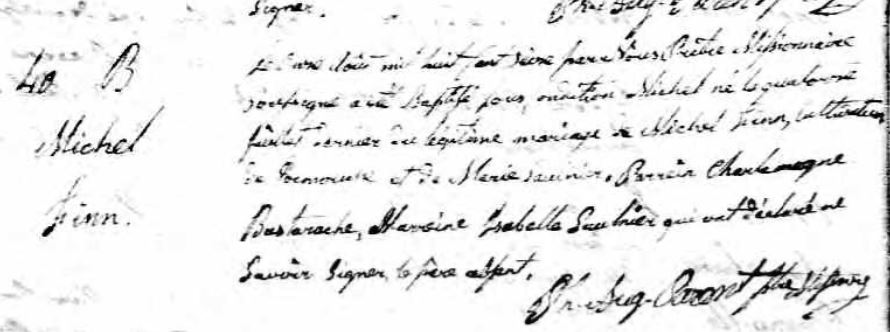 Signer.
40 B
Michel
Finn.
Le onze d'oût mil huit cent seize par Nous Prêtre Missionnaire
soussigné a été Baptisé sous condition Michel né le quatorze
juillet dernier du légitime mariage de Michel Finn, cultivateur
de et de Marie saunier. Parrein Charlemagne
Bastarache, Marreine Isabelle Saulnier qui ont déclaré ne
Savoir Signer, le père absent.